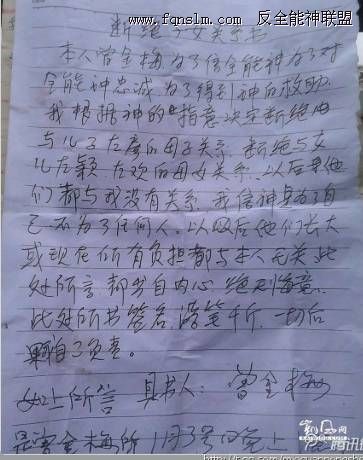 www.fqnslm.com 反全能神联盟
断绝子女关系书
本人曾金梅为了信全能神为了对
全能神忠诚为了得到神的救助
我根据神的"指意决定断绝
与儿子左 的母子关系.断绝与女
儿左颖.左欢的母女关系.以后
们都与我没有关系.我信神是为了自
己不为了任何人.以以后他们长大
或现在所有负担都与本人无关.此
处所言都出自内心绝无悔意.
此处所书签名.落笔千斤.一切后
果自己负责.
如上所言 具书人:曾金梅
是曾金梅所 1月3号晚上
腾讯